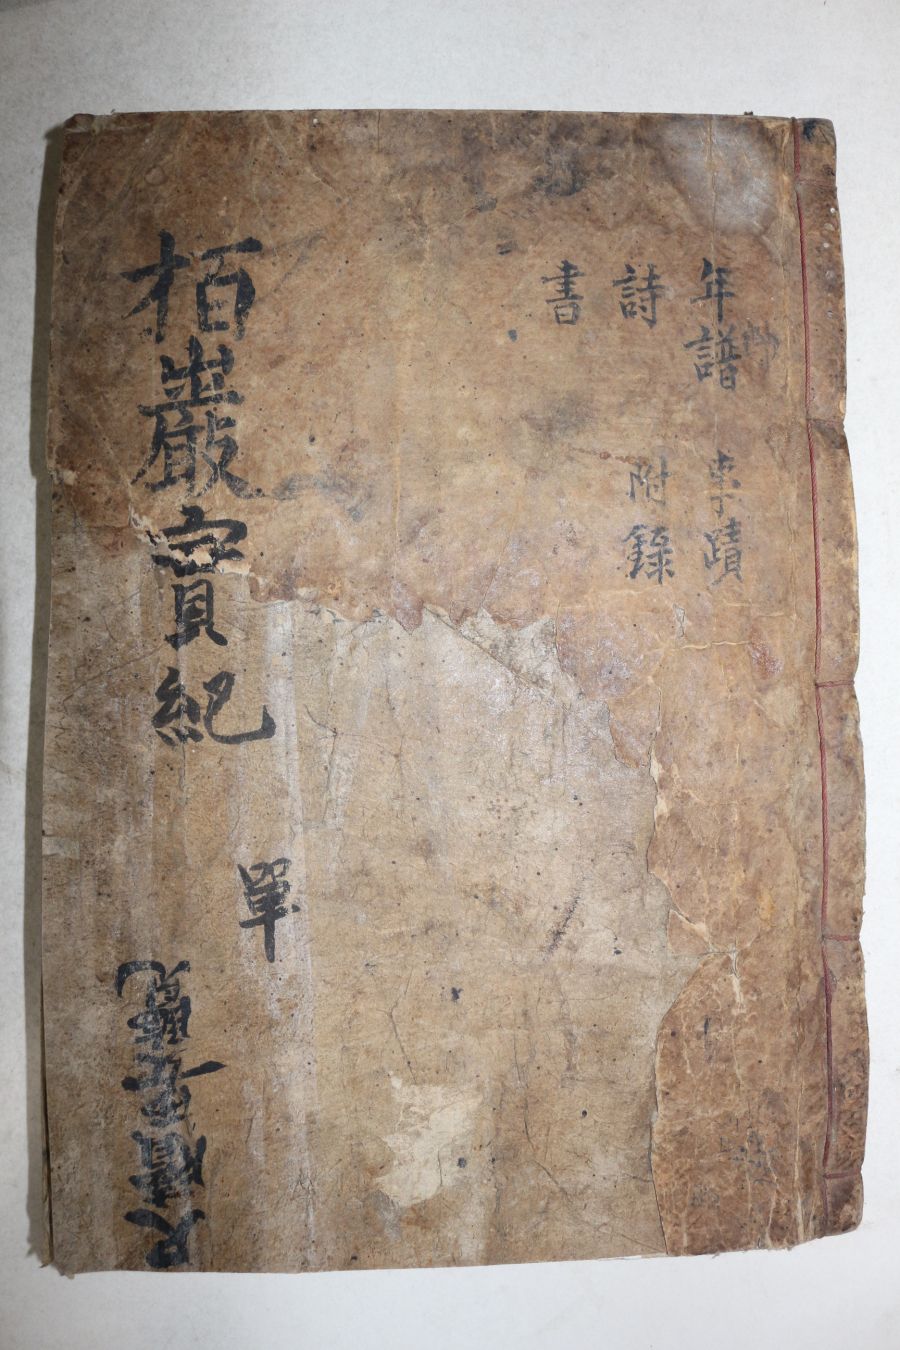 年譜 事蹟
詩 附錄
書
栢巖實紀
單